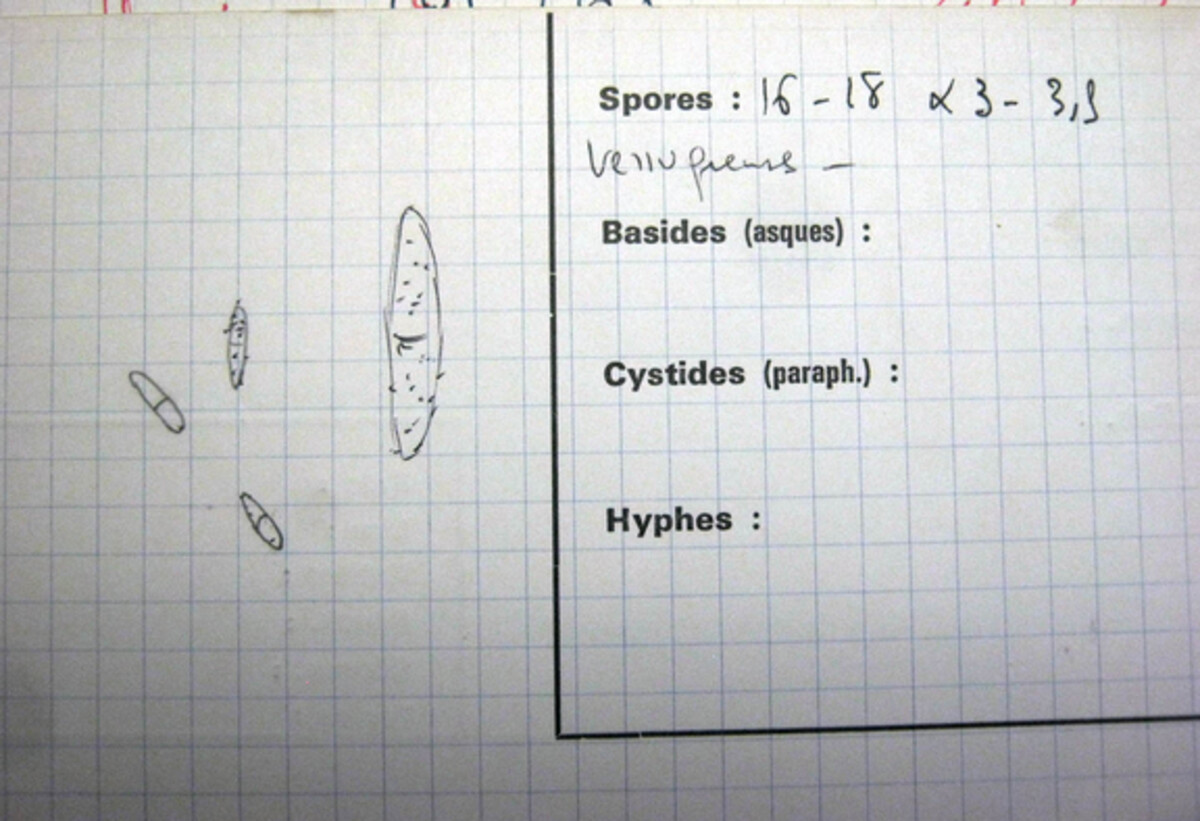 Spores : 16 - 18 x 3 - 3,5
verruqueuses -
Basides (asques) :
Cystides (paraph.) :
Hyphes :